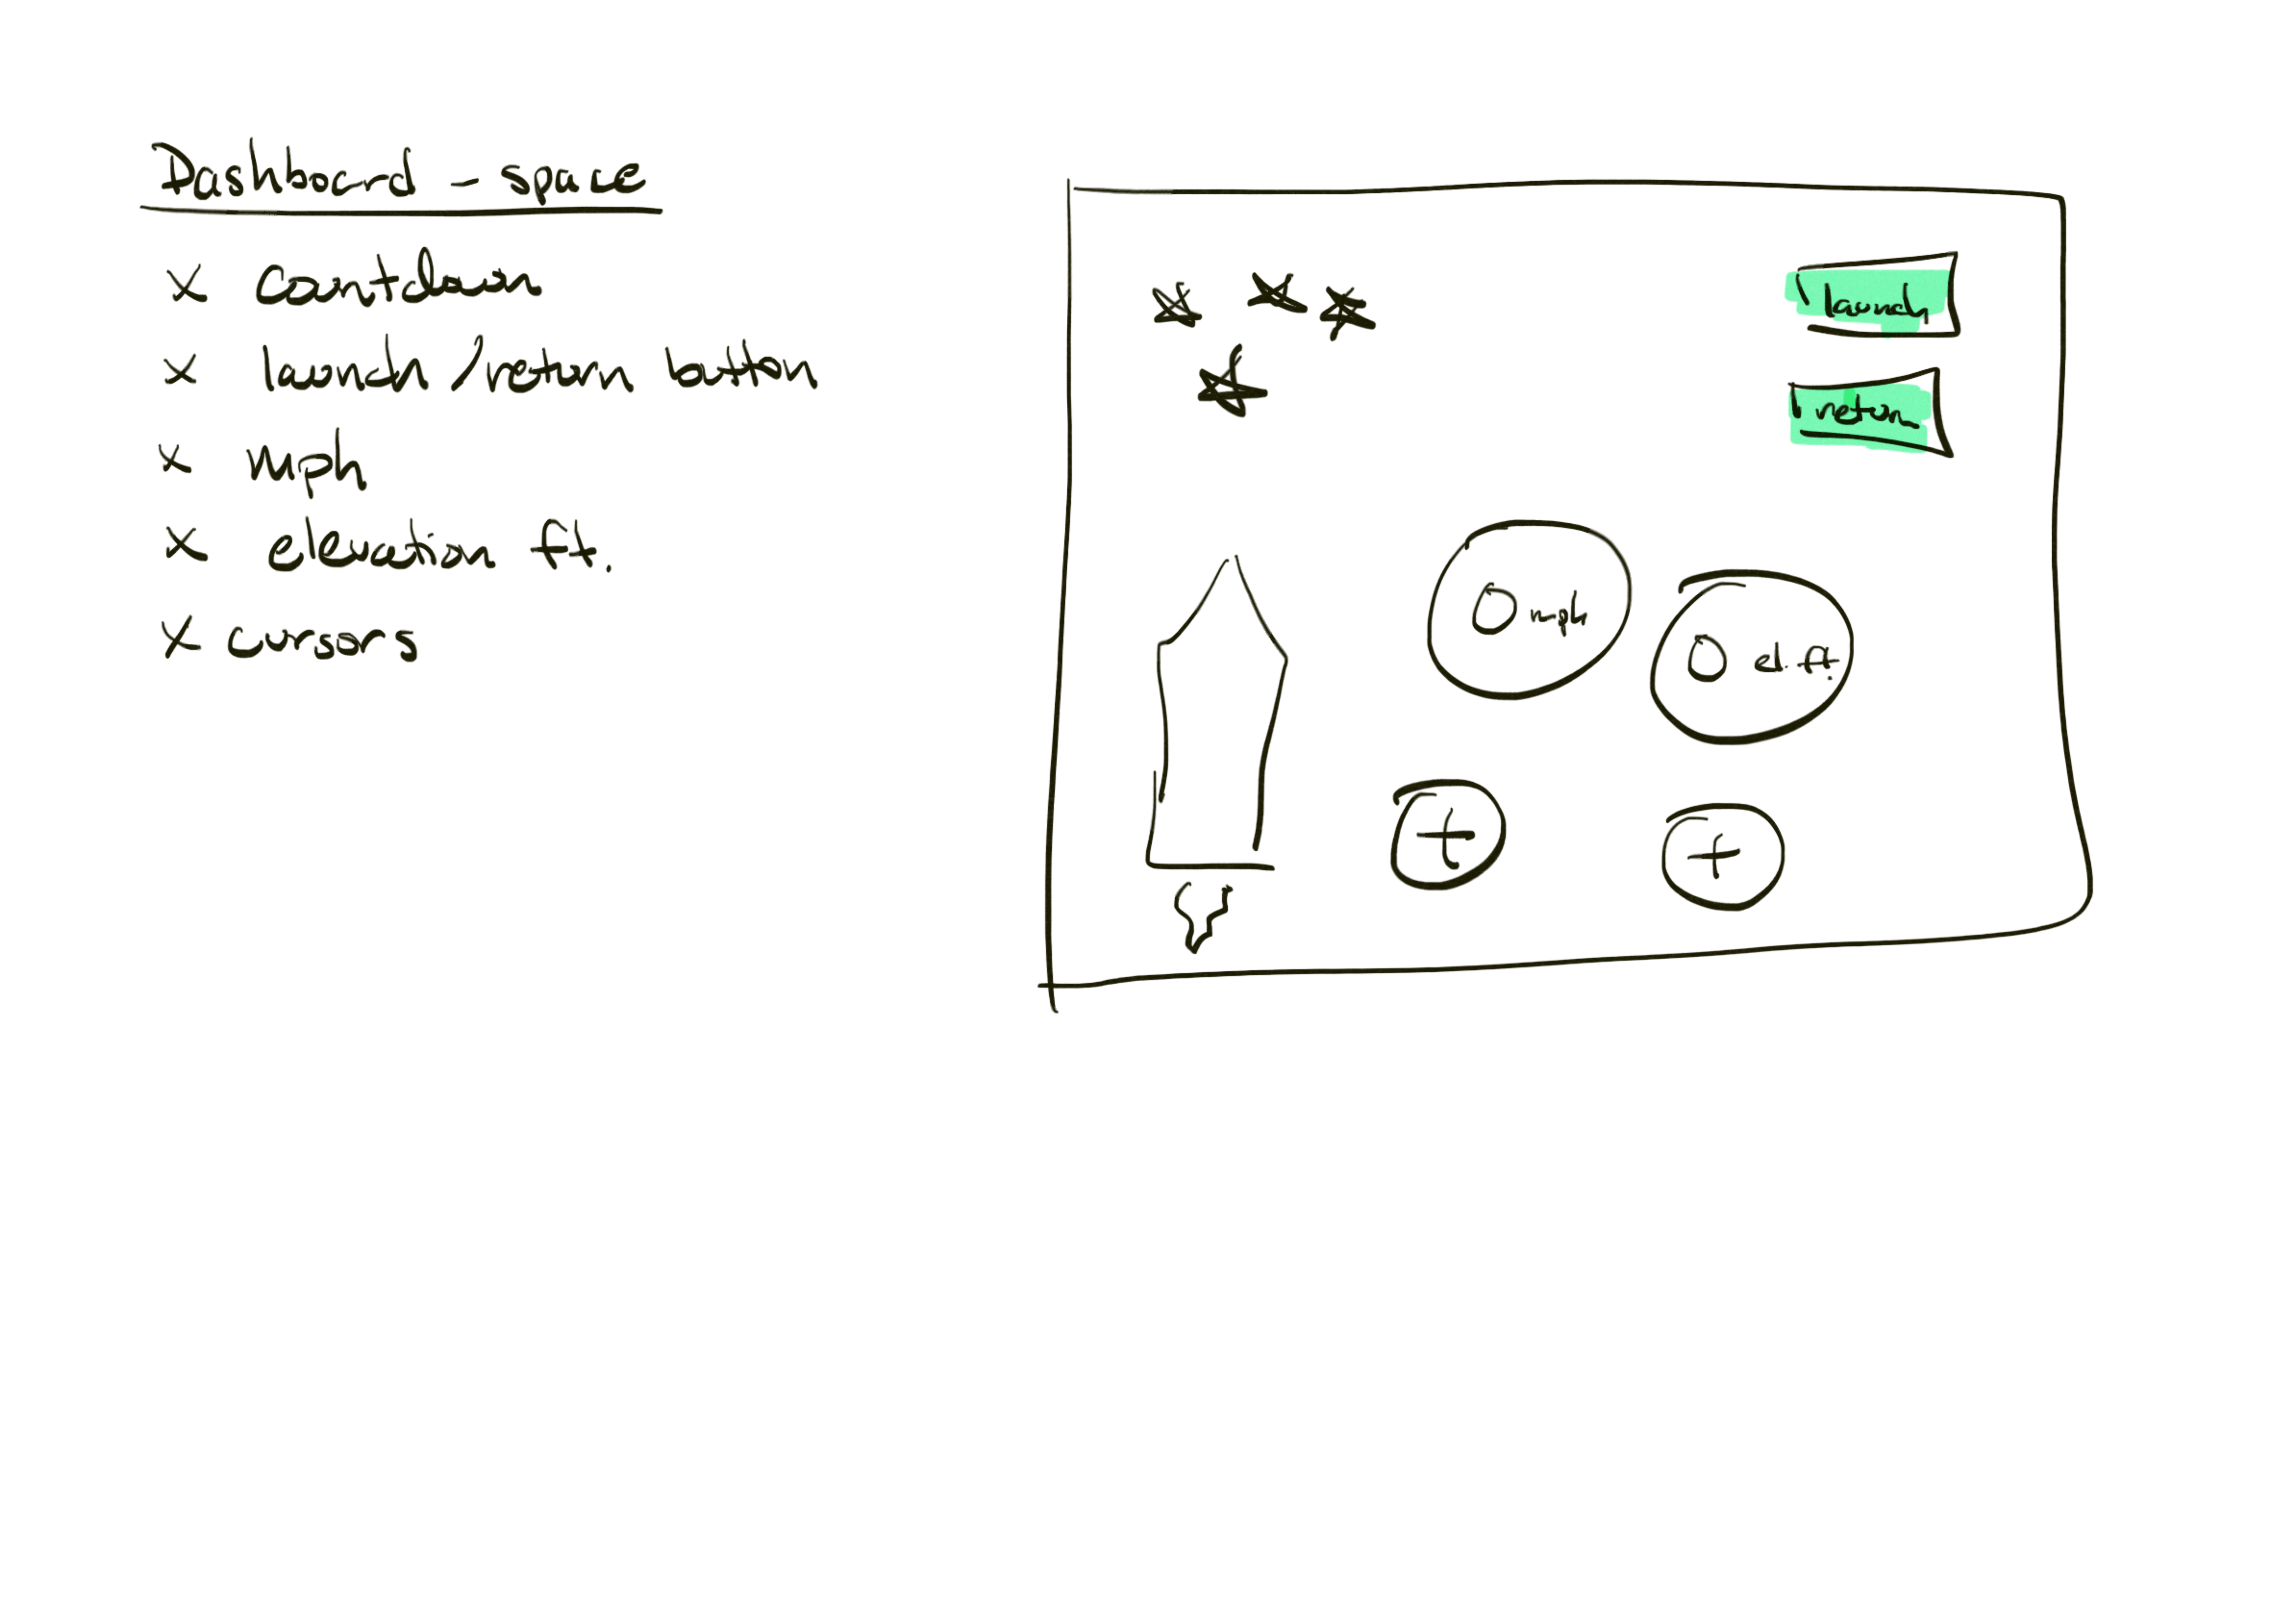 Dashboard - space
x countdown
x launch/return button
x mph
x elevation ft.
x cursors
launch
return
0 mph
0 el. ft.
+
+